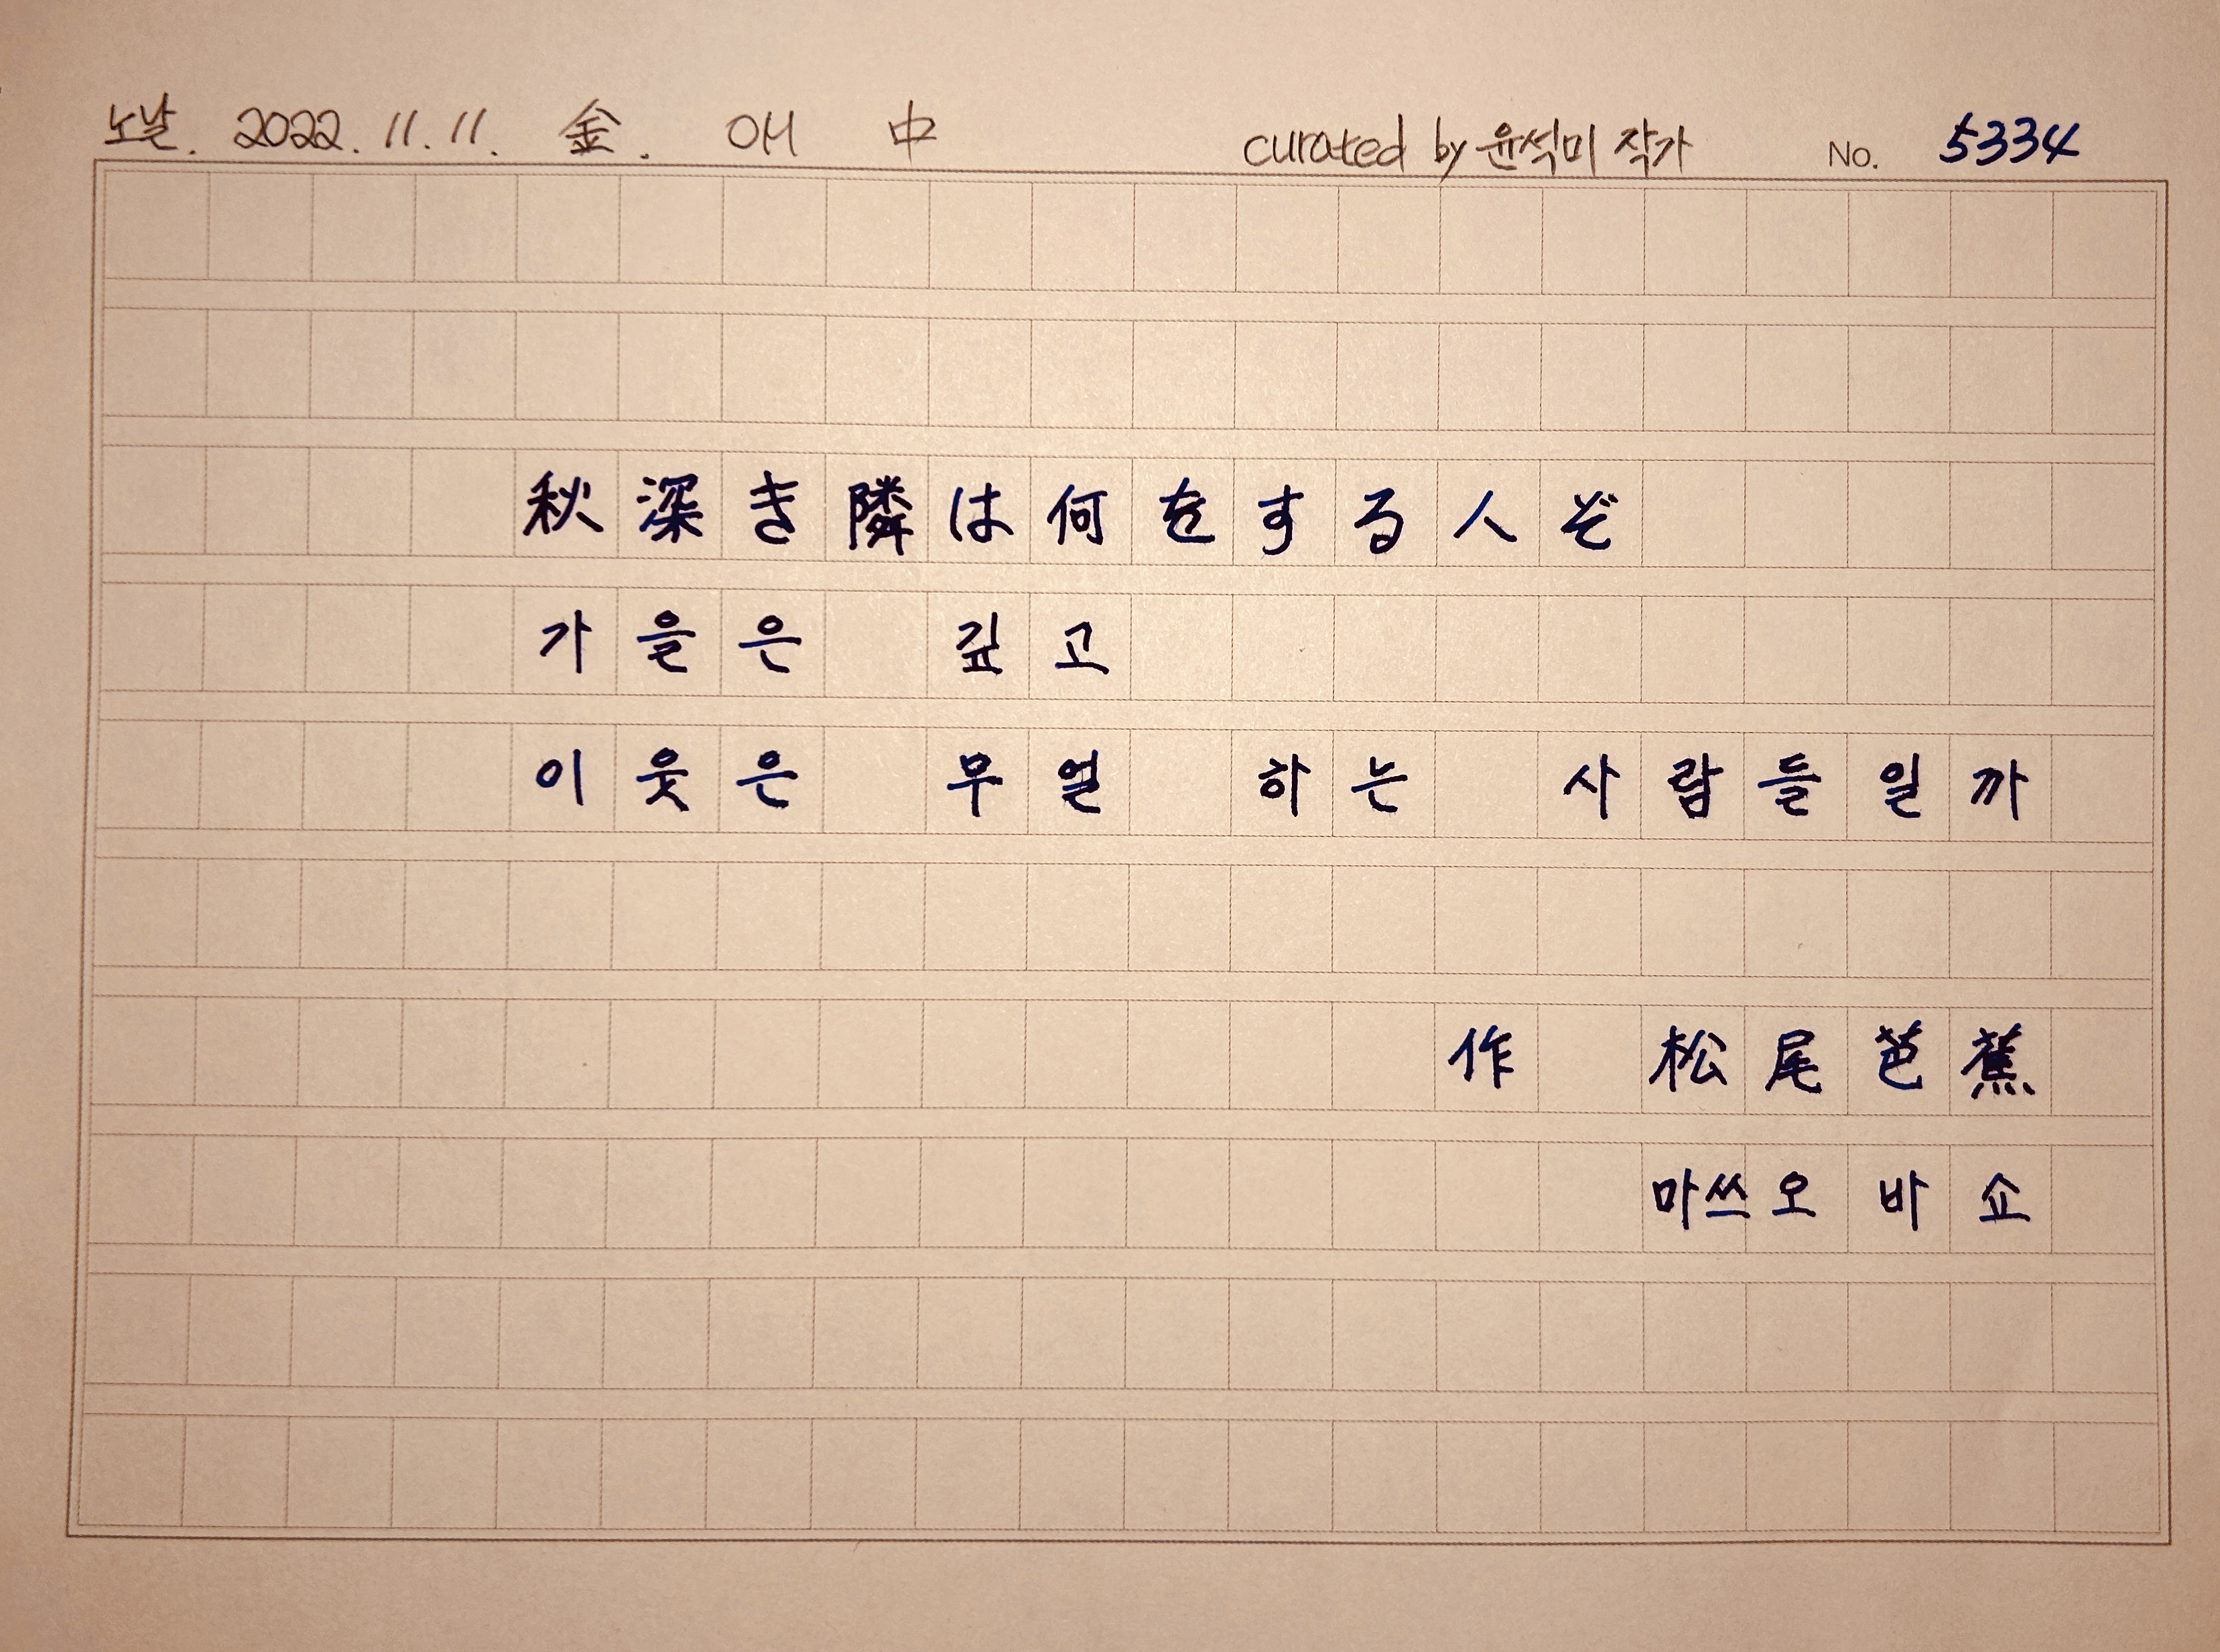 노날. 2022. 11. 11. 金. OH 中 curated by 윤석미 작가 No. 5334
秋深き隣は何をする人ぞ
가을은 깊고
이웃은 무얼 하는 사람들일까
作 松尾芭蕉
마쓰오 바쇼